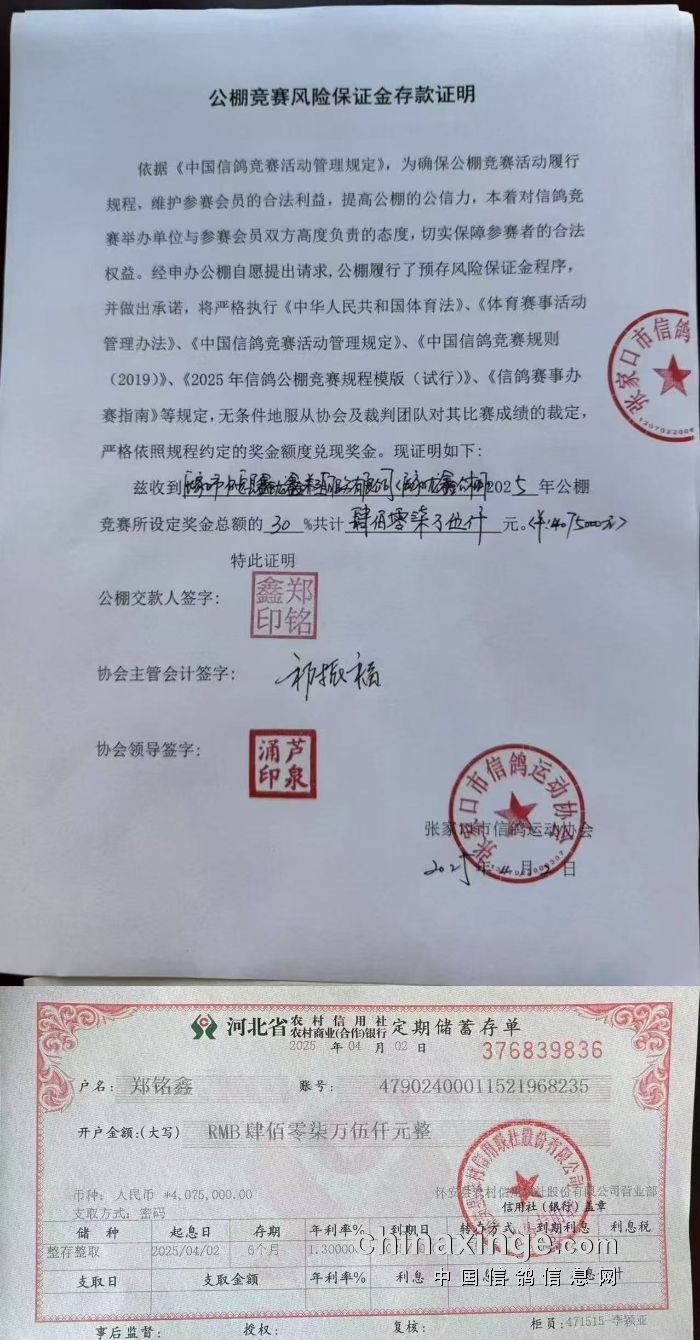 公棚竞赛风险保证金存款证明
依据《中国信鸽竞赛活动管理规定》，为确保公棚竞赛活动履行
规程，维护参赛会员的合法利益，提高公棚的公信力，本着对信鸽竞
赛举办单位与参赛会员双方高度负责的态度，切实保障参赛者的合法
权益。经申办公棚自愿提出请求,公棚履行了预存风险保证金程序，
并做出承诺，将严格执行《中华人民共和国体育法》、《体育赛事活动
管理办法》、《中国信鸽竞赛活动管理规定》、《中国信鸽竞赛规则
（2019）》、《2025 年信鸽公棚竞赛规程模版（试行）》、《信鸽赛事办
赛指南》等规定，无条件地服从协会及裁判团队对其比赛成绩的裁定，
严格依照规程约定的奖金额度兑现奖金。现证明如下:
张家口市信鸽
兹收到 2025 年公棚
竞赛所设定奖金总额的 30 %共计 肆佰零柒万伍仟 元。(¥:4075000元)
特此证明
公棚交款人签字:
郑铭鑫印
协会主管会计签字:
祁振福
协会领导签字:
芦泉涌印
张家口市信鸽运动协会
张家口市信鸽运动协会
2025 年 4 月 2 日
河北省 农村信用社 农村商业(合作)银行 定期储蓄存单
2025 年 04 月 02 日
376839836
户名: 郑铭鑫 账号: 47902400011521968235
开户金额:(大写) RMB肆佰零柒万伍仟元整
币种: 人民币 *4,075,000.00
怀安县农村信用联社股份有限公司营业部
支取方式: 密码
信用社（银行）盖章
储种 起息日 存期 年利率% 到期日 转存方式 到期利息 利息税
整存整取 2025/04/02 6个月 1.30000
chinaxinge.com
支取日 支取金额 年利率% 利息
中国信鸽信息网
事后监督: 授权: 复核: 柜员:471515-李颖亚